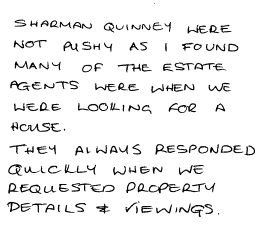 SHARMAN QUINNEY WERE
NOT PUSHY AS I FOUND
MANY OF THE ESTATE
AGENTS WERE WHEN WE
WERE LOOKING FOR A
HOUSE.
THEY ALWAYS RESPONDED
QUICKLY WHEN WE
REQUESTED PROPERTY
DETAILS & VIEWINGS.